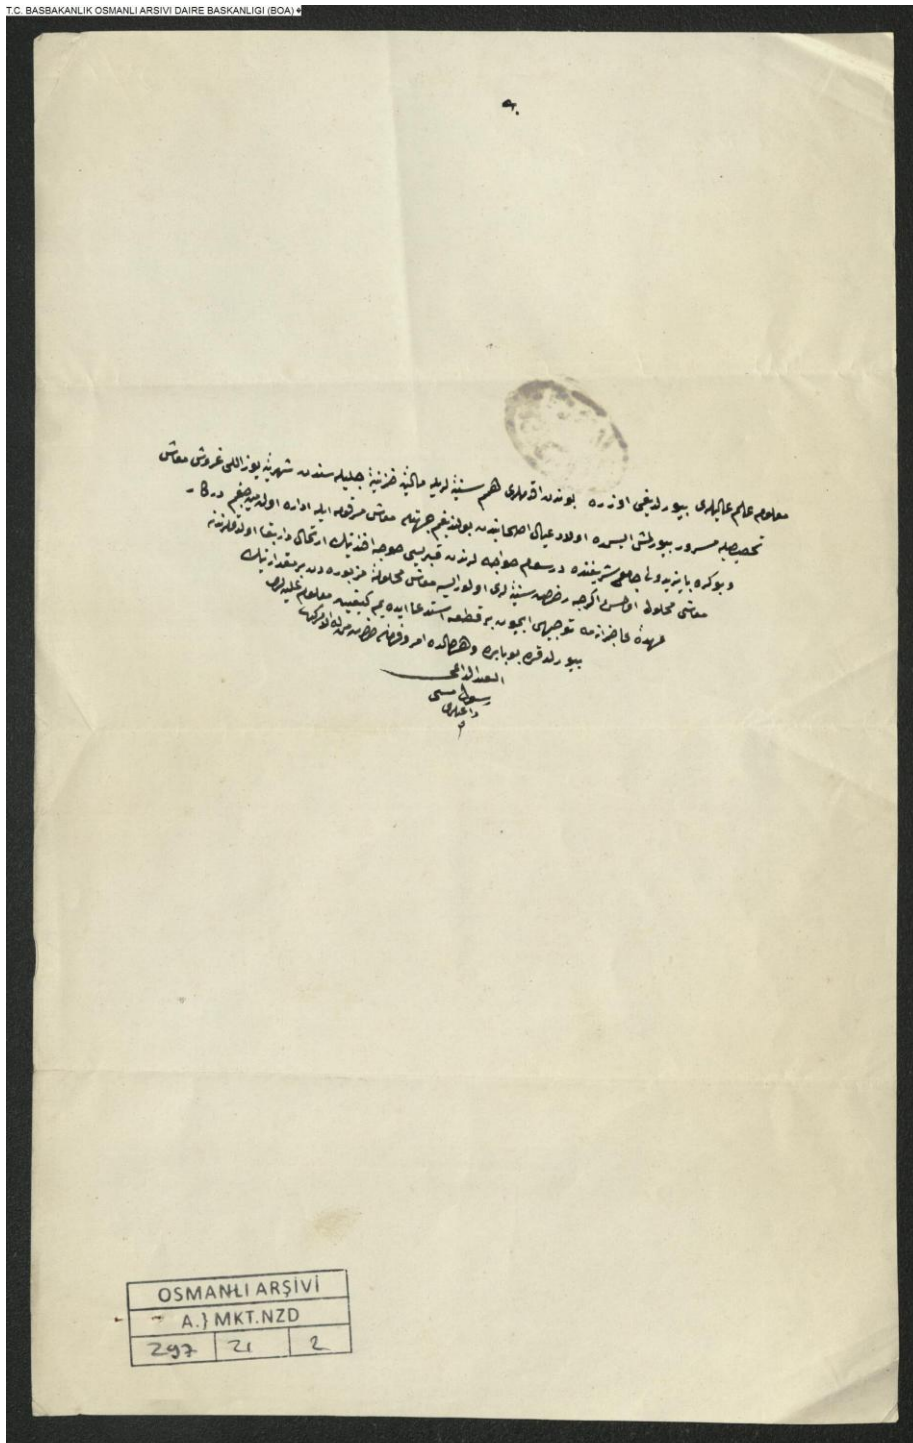 T.C. BASBAKANLIK OSMANLI ARSIVI DAIRE BASKANLIGI (BOA)
معلوم عالم عاليلری بيورلديغی اوزره بوندن اقدم هم سنيه لريله ماليه خزينۀ جليله سندن شهريه يوز اللی غروش معاش
تخصيصيله مسرور بيورلمش ايسه ده اولاد عيال اصحابندن بولنديغم جهتله معاش مرقوم ايله اداره اوله ميه جغم دركار
و بو كره بايزيد ولی جامع شريفنده درسعام خواجه لرندن قبريسی خواجه افندينك ارتحال دار بقا اولدقلرندن
معاشی محلول اولمش اكرچه رخصت سنيه لری اولور ايسه معاش محلولۀ مزبوره دن بر مقدارينك
عهدۀ عاجزانمه توجيهی ايچون بر قطعه استدعا ايده يم كيفيت معلوم عليه لری
بيورلدقده بو بابده و هر حالده امر و فرمان حضرت من له الامركدر
العبد الداعی
رسول
داعيلری
OSMANLI ARŞİVİ
A.} MKT.NZD
297 21 2